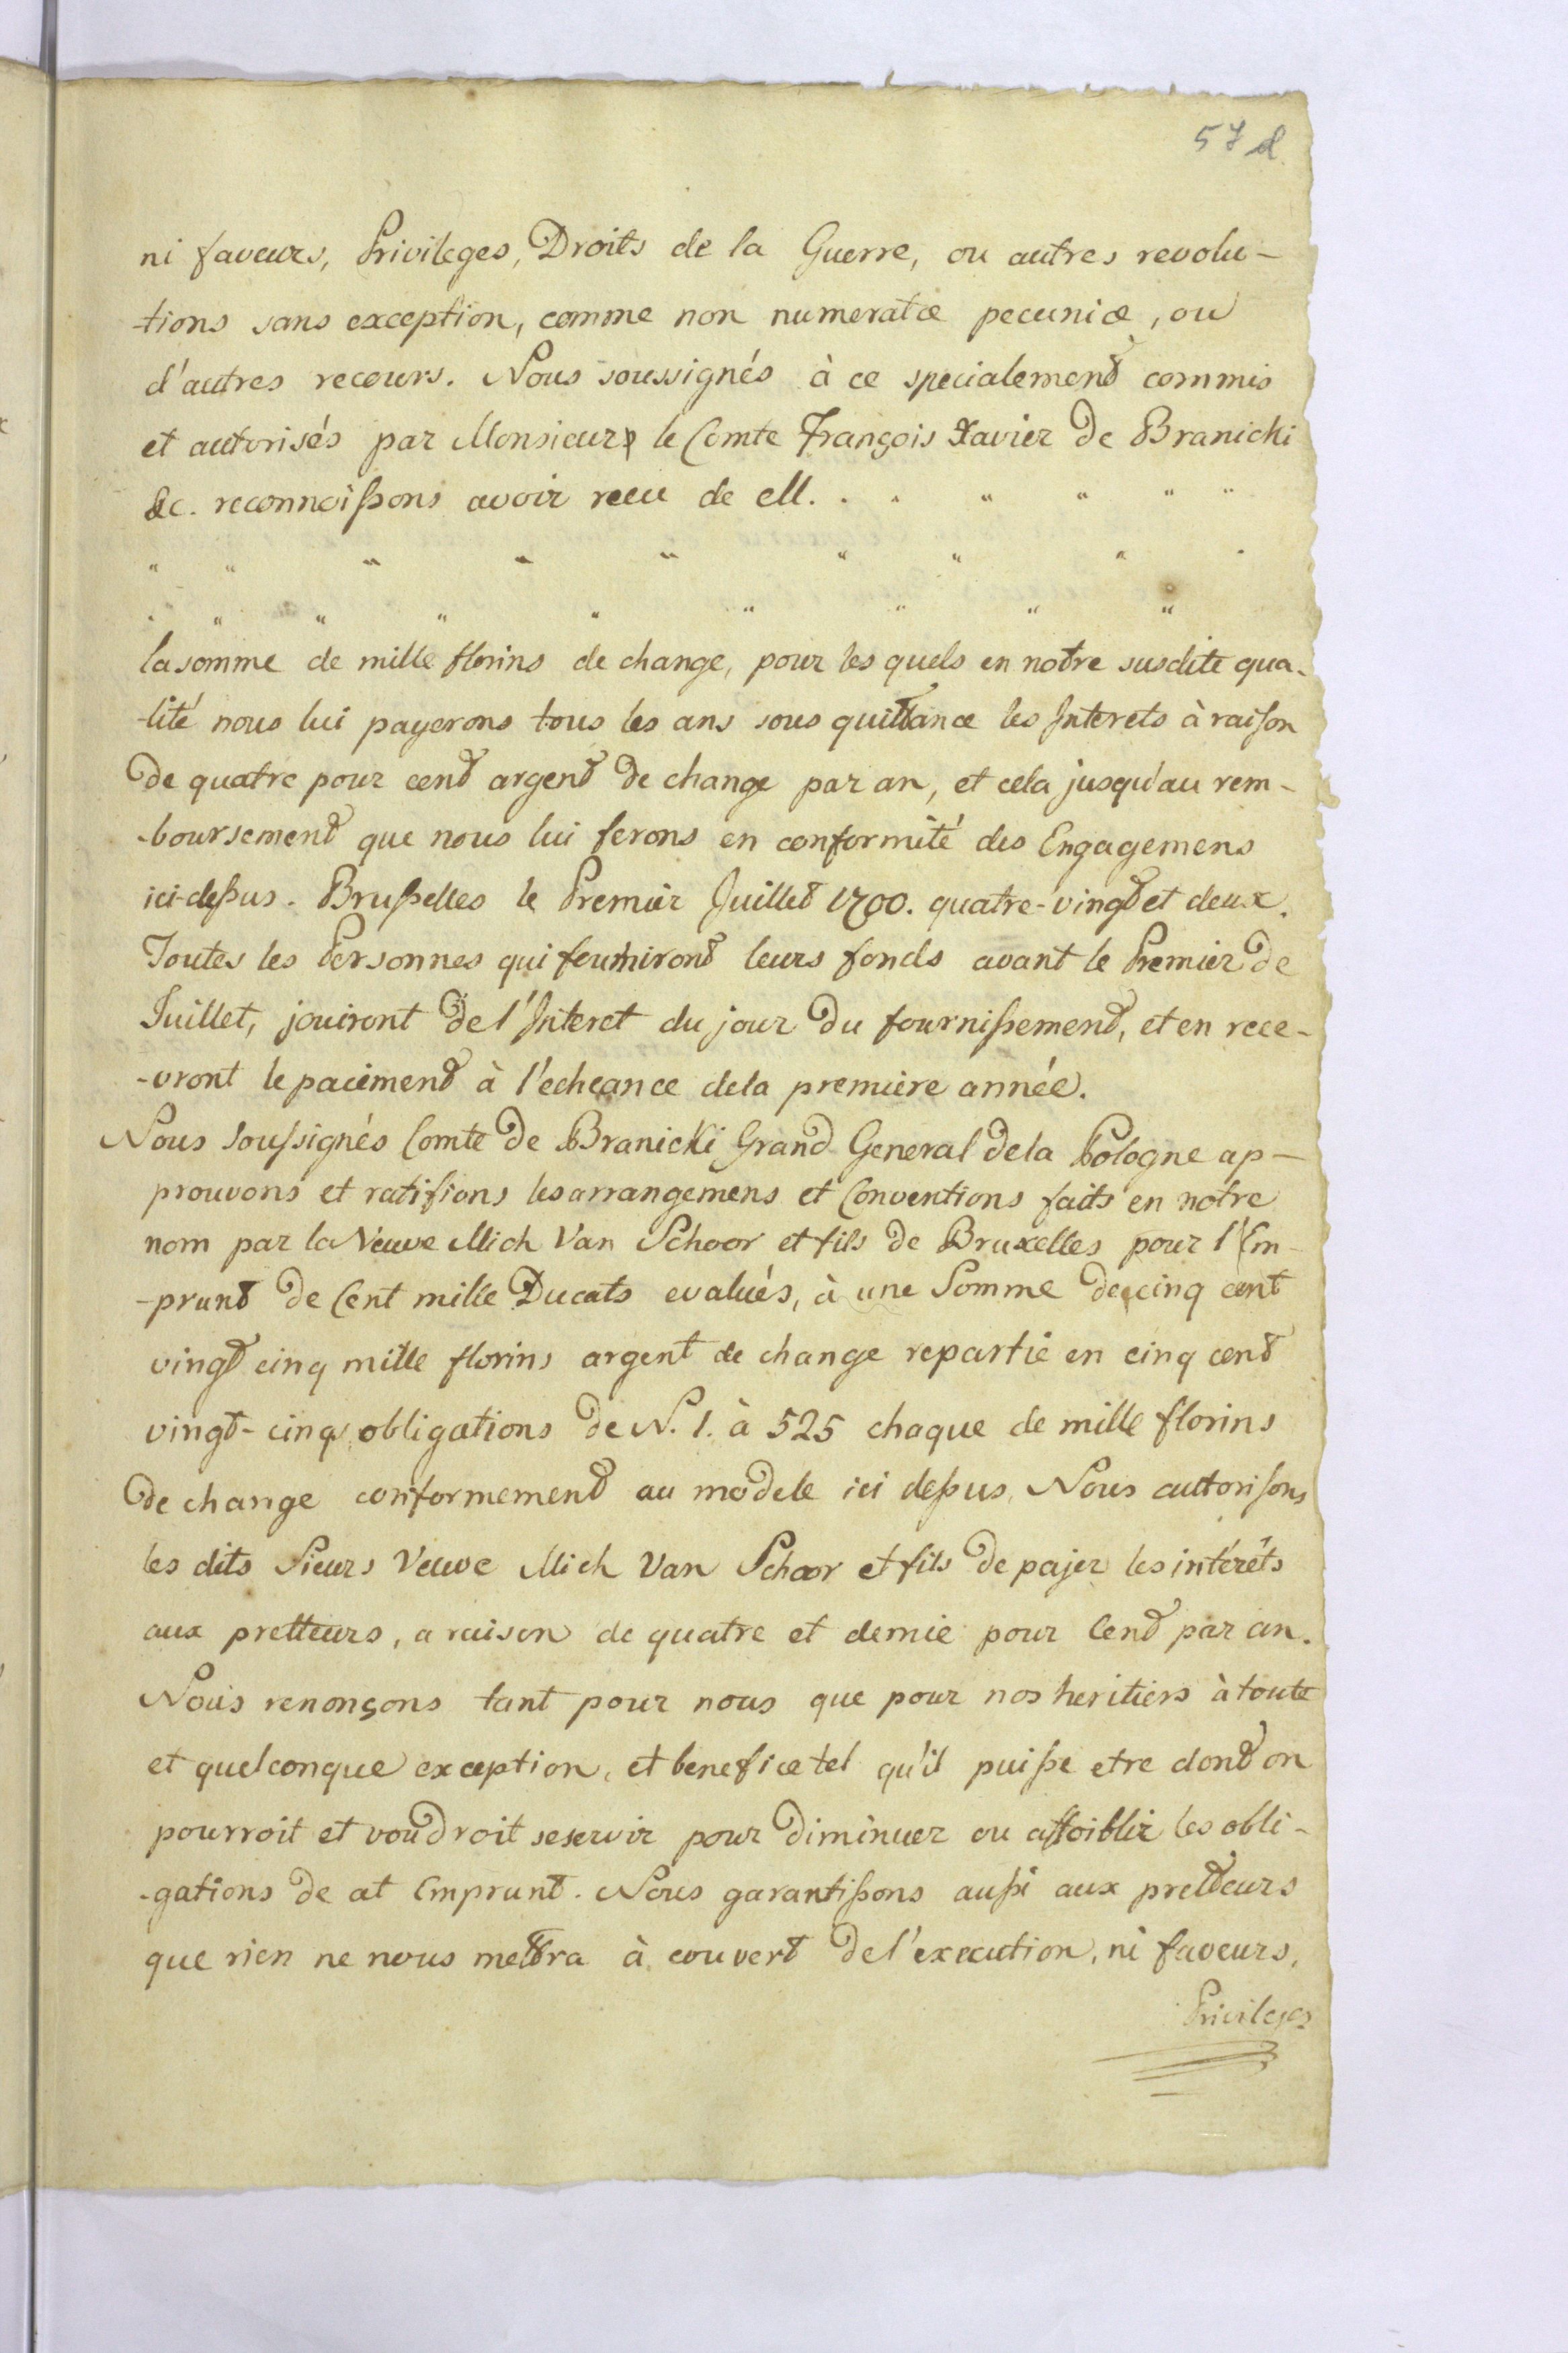 57 d.
ni faveurs, Privileges, Droits de la Guerre, ou autres revolu-
-tions sans exception, comme non numeratæ pecuniæ, ou
d'autres recours. Nous soussignés à ce specialement commis
et autorisés par Monsieur le Comte François Xavier de Branicki
&c. reconnoissons avoir recu de M. . . " " " "
" " " " " " " " .
. " " " " " " " "
la somme de mille florins de change, pour les quels en notre susdite qua-
-lité nous lui payerons tous les ans sous quittance les Interets à raison
de quatre pour cent argent de change par an, et cela jusqu'au rem-
-boursement que nous lui ferons en conformité des Engagemens
ici-dessus. Brusselles le Premier Juillet 1700. quatre-vingt et deux.
Toutes les Personnes qui fourniront leurs fonds avant le Premier de
Juillet, jouiront de l'Interet du jour du fournissement, et en rece-
-vront le paciment à l'echeance de la premiere année.
Nous soussignés Comte de Branicki Grand General de la Pologne ap-
prouvons et ratifions les arrangemens et Conventions faits en notre
nom par la Veuve Mich Van Schoor et fils de Bruxelles pour l'Em-
-prunt de Cent mille Ducats evalués, à une Somme de cinq cent
vingt cinq mille florins argent de change repartie en cinq cent
vingt-cinq obligations de N. 1. à 525 chaque de mille florins
de change conformement au modele ici dessus, Nous auttorisons
les dits Sieurs Veuve Mich Van Schoor et fils de pajer les intérêts
aux pretteurs, a raison de quatre et demie pour Cent par an.
Nous renonçons tant pour nous que pour nos heritiers à toute
et quelconque exception, et benefice tel qu'il puisse etre dont on
pourroit et voudroit se servir pour diminuer ou affoiblir les obli-
-gations de cet Emprunt. Nous garantissons aussi aux pretteurs
que rien ne nous mettra à couvert de l'execution, ni faveurs,
Privileges